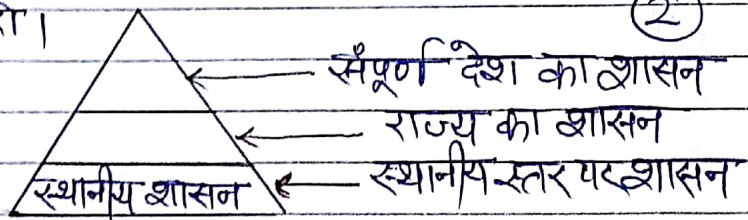 (2)
संपूर्ण देश का शासन
राज्य का शासन
स्थानीय शासन स्थानीय स्तर पर शासन